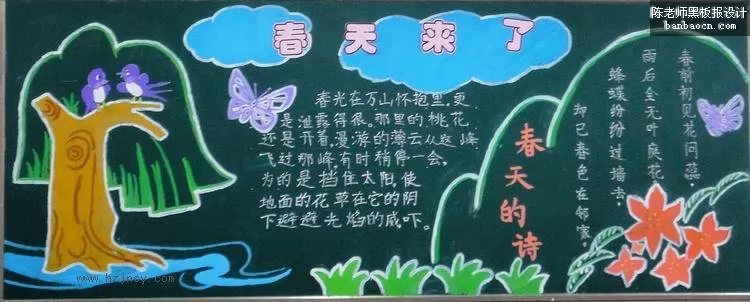 春天来了
陈老师黑板报设计
banbaocn.com
春光在万山怀抱里,更
是泄露得很。那里的桃花
还是开着,漫游的薄云从这峰
飞过那峰,有时稍停一会,
为的是挡住太阳,使
地面的花草在它的阴
下避避光焰的威吓。
春天的诗
春前初见花问蕊,
雨后全无叶庭花
蜂蝶纷纷过墙去,
却已春色在邻家。